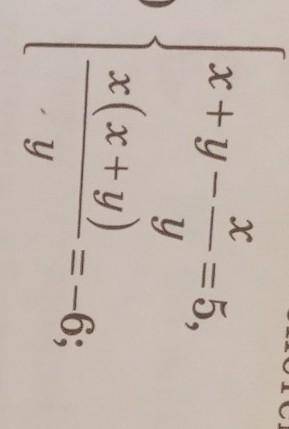 x + y - x/y = 5,
x(x + y)/y = -6;